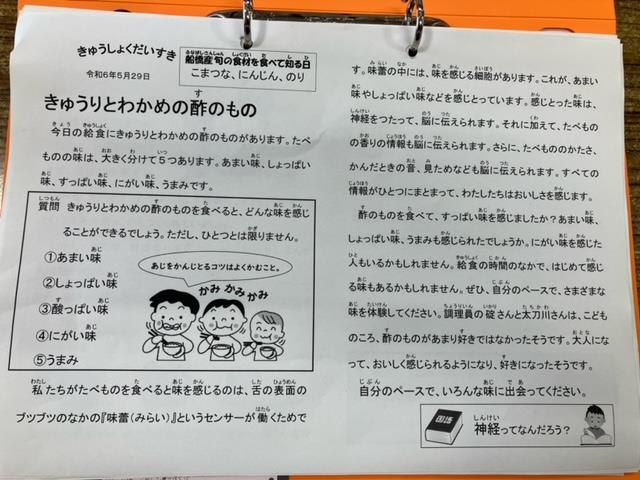 きゅうしょくだいすき
令和6年5月29日
船橋産 旬の食材を食べて知る日
こまつな、にんじん、のり
きゅうりとわかめの酢のもの
今日の給食にきゅうりとわかめの酢のものがあります。たべ
ものの味は、大きく分けて5つあります。あまい味、しょっぱい
味、すっぱい味、にがい味、うまみです。
質問 きゅうりとわかめの酢のものを食べると、どんな味を感じ
ることができるでしょう。ただし、ひとつとは限りません。
①あまい味
②しょっぱい味
③酸っぱい味
④にがい味
⑤うまみ
あじをかんじとるコツはよくかむこと。
かみ かみ かみ
私たちがたべものを食べると味を感じるのは、舌の表面の
ブツブツのなかの『味蕾(みらい)』というセンサーが働くためで
す。味蕾の中には、味を感じる細胞があります。これが、あまい
味やしょっぱい味などを感じとっています。感じとった味は、
神経をつたって、脳に伝えられます。それに加えて、たべもの
の香りの情報も脳に伝えられます。さらに、たべもののかたさ、
かんだときの音、見ためなども脳に伝えられます。すべての
情報がひとつにまとまって、わたしたちはおいしさを感じます。
酢のものを食べて、すっぱい味を感じましたか?あまい味、
しょっぱい味、うまみも感じられたでしょうか。にがい味を感じた
人もいるかもしれません。給食の時間のなかで、はじめて感じ
る味もあるかもしれません。ぜひ、自分のペースで、さまざまな
味を体験してください。調理員の碇さんと太刀川さんは、こども
のころ、酢のものがあまり好きではなかったそうです。大人にな
って、おいしく感じられるようになり、好きになったそうです。
自分のペースで、いろんな味に出会ってください。
国語
神経ってなんだろう?